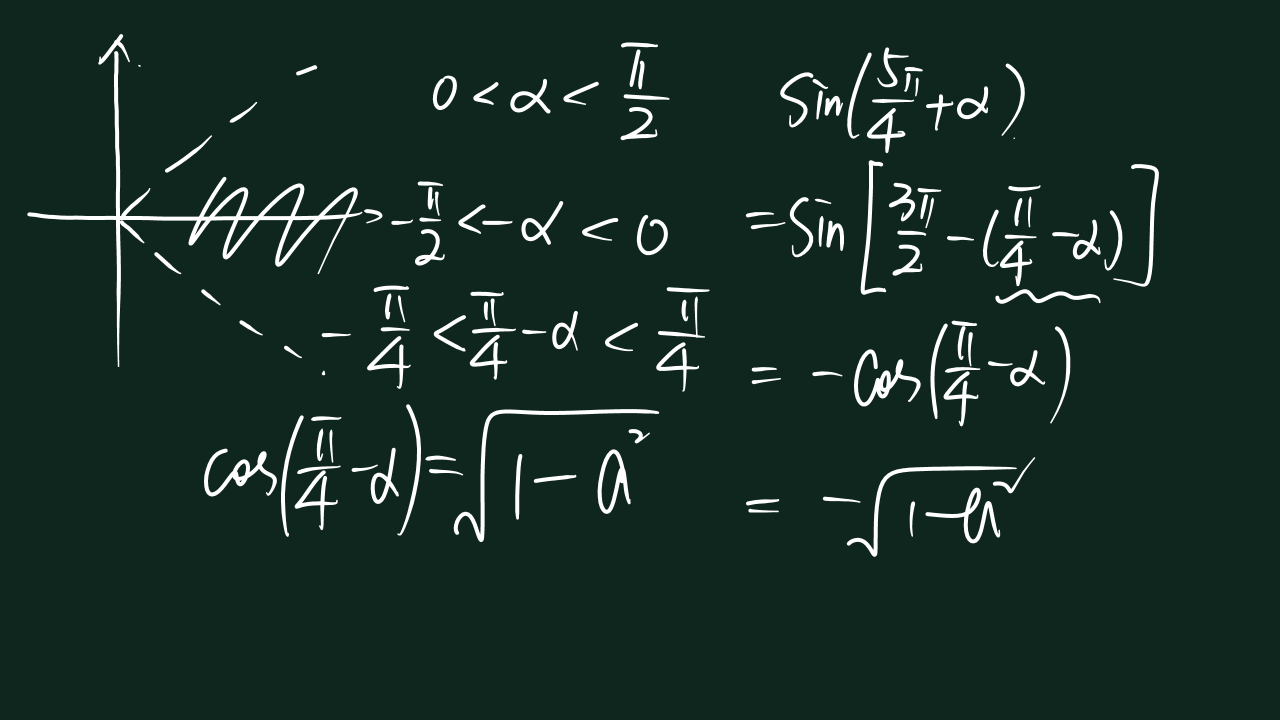 0 < α < π/2
-π/2 < -α < 0
-π/4 < π/4 - α < π/4
cos(π/4 - α) = √(1 - a²)
Sin(5π/4 + α)
= Sin[3π/2 - (π/4 - α)]
= -cos(π/4 - α)
= -√(1 - a²)